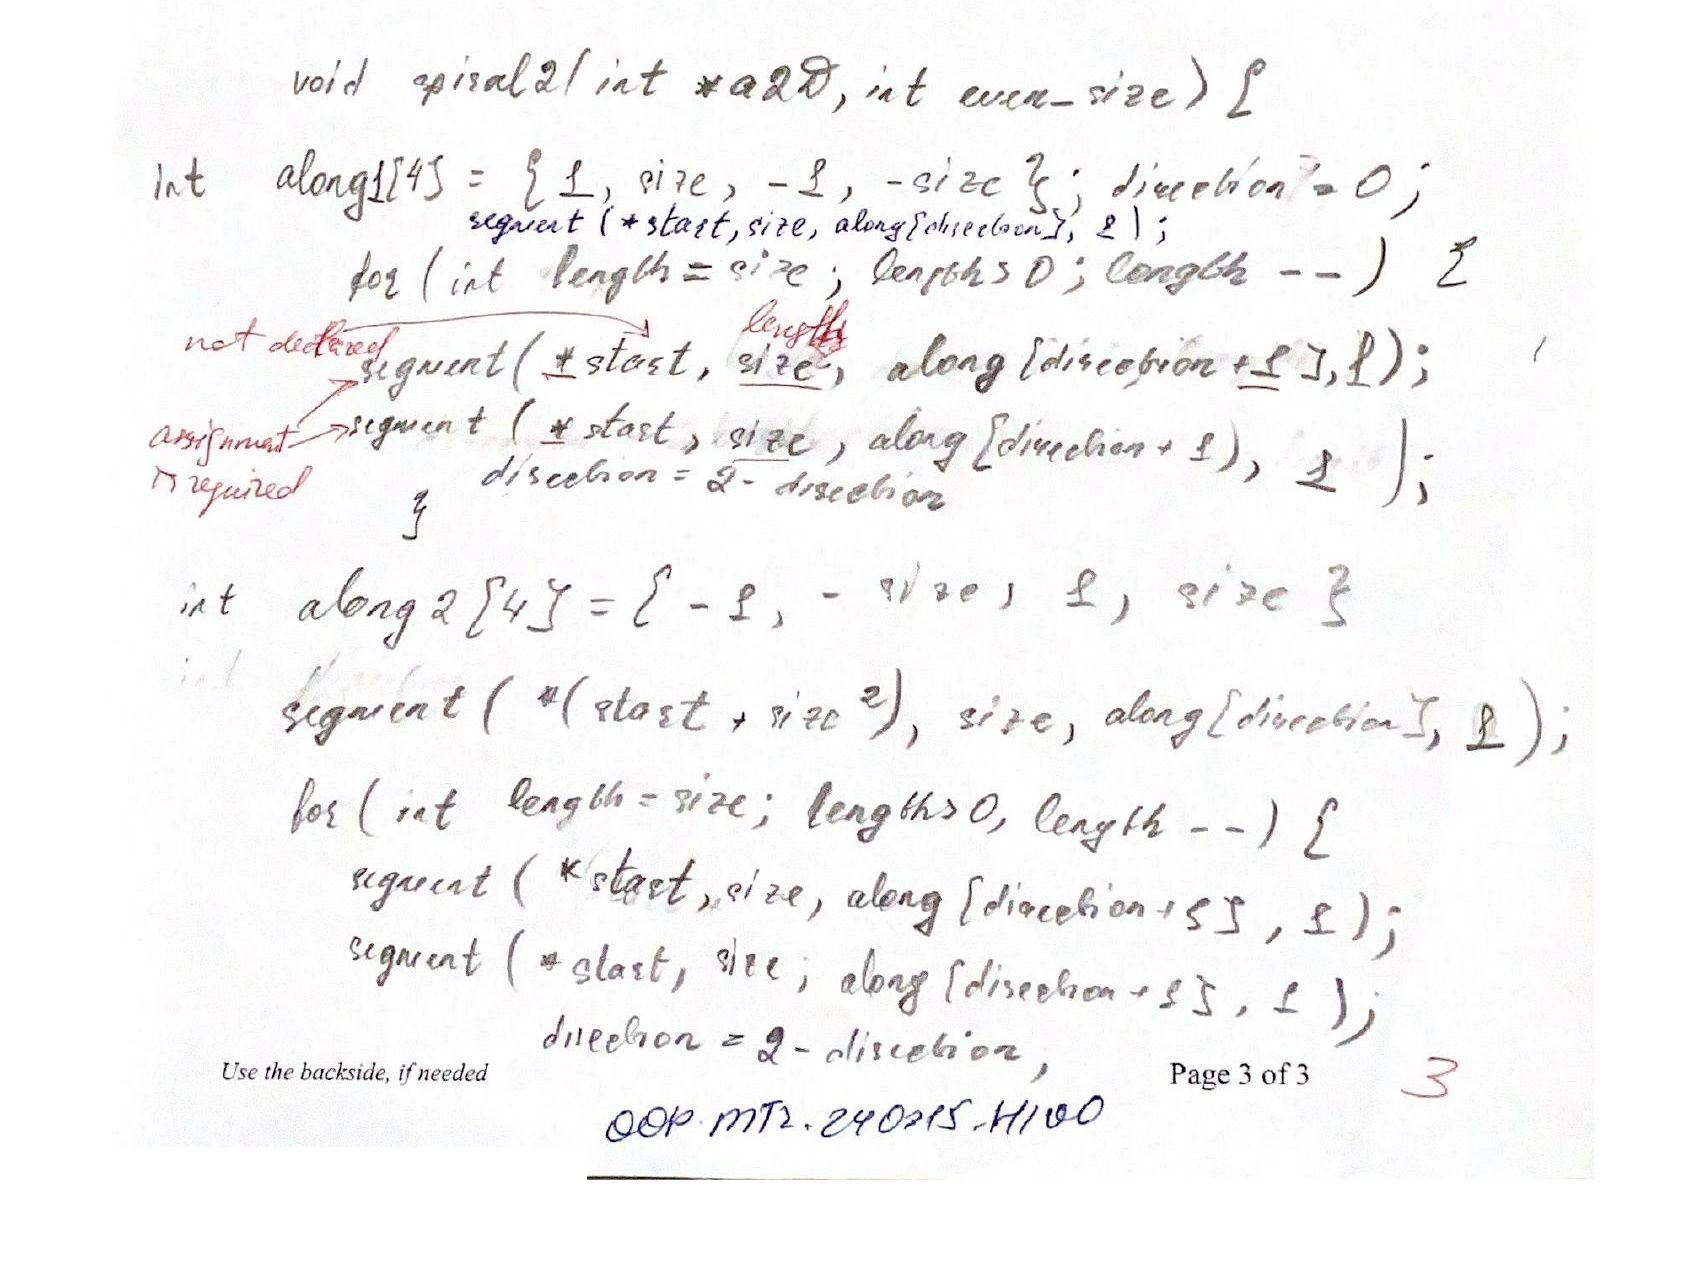 void spiral2( int *a2D, int even_size) {
int along1[4] = { 1, size, -1, -size }; direction = 0;
segment (*start, size, along[direction], 1);
for (int length = size; length > 0; length --) {
length
not declared
segment( *start, size, along [direction + 1], 1);
assignment is required
segment ( *start, size, along [direction + 1), 1 );
direction = 2 - direction
}
int along2[4] = { -1, - size, 1, size }
segment ( *( start + size ²), size, along[direction], 1 );
for ( int length = size; length > 0, length --) {
segment ( *start, size, along [direction + 1], 1 );
segment ( *start, size; along [direction + 1], 1 );
direction = 2 - direction,
Use the backside, if needed
Page 3 of 3
3